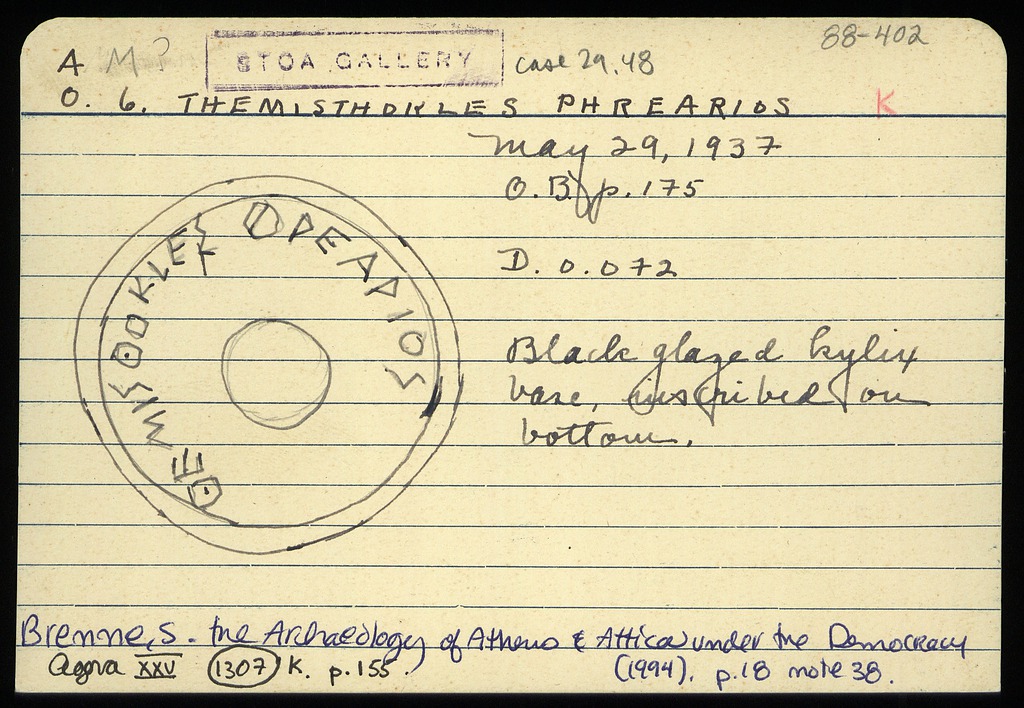 88-402
A M? STOA GALLERY case 29.48
O. 6. THEMISTHOKLES PHREARIOS K
May 29, 1937
O.B. p. 175
D. 0.072
ΘEMIΣΘOKLEΣ ΦPEAPIOΣ
Black glazed kylix
base, inscribed on
bottom.
Brenne, S. the Archaeology of Athens & Attica under the Democracy
Agora XXV 1307 K. p. 155. (1994). p.18 note 38.